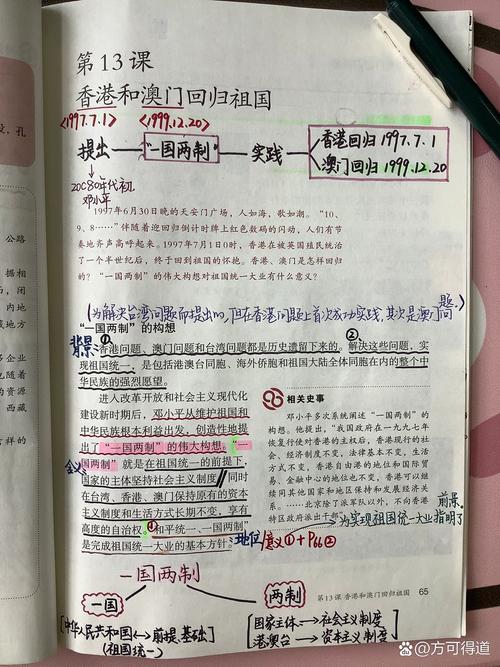 第13课
香港和澳门回归祖国
<1997.7.1> <1999.12.20>
提出——"一国两制"——实践
香港回归 1997.7.1
澳门回归 1999.12.20
20C80年代初
邓小平
1997年6月30日晚的天安门广场，人如海，歌如潮。"10、
9、8……"伴随着迎回归倒计时牌上红色数码的闪动，人们有节
奏地齐声高呼起来。1997年7月1日0时，香港在被英国殖民统治
了一个半世纪后，终于回到祖国的怀抱。香港、澳门是怎样回归
的？"一国两制"的伟大构想对祖国统一大业有什么意义？
(为解决台湾问题而提出的，但在香港问题上首次成功实践，其次是澳门问题)
"一国两制"的构想
背景：①香港问题、澳门问题和台湾问题都是历史遗留下来的。②解决这些问题，实
现祖国统一，是包括港澳台同胞、海外侨胞和祖国大陆全体同胞在内的整个中
华民族的强烈愿望。
进入改革开放和社会主义现代化
建设新时期后，邓小平从维护祖国和
中华民族根本利益出发，创造性地提
出了"一国两制"的伟大构想。"一
国两制"就是在祖国统一的前提下，
含义
国家的主体坚持社会主义制度，同时
在台湾、香港、澳门保持原有的资本
主义制度和生活方式长期不变，享有
高度的自治权。①"和平统一、一国两制"
是完成祖国统一大业的基本方针。
地位/意义①+P66②
相关史事
邓小平多次系统阐述"一国两制"的
构想。他提出，"我国政府在一九九七年
恢复行使对香港的主权后，香港现行的社
会、经济制度不变，法律基本不变，生活
方式不变，香港自由港的地位和国际贸
易、金融中心的地位也不变，香港可以继
续同其他国家和地区保持和发展经济关
系。……北京除了派军队以外，不向香港
特区政府派出干部"
为实现祖国统一大业指明了前景
一国两制
一国
两制
[中华人民共和国↔前提、基础]
(祖国统一)
国家主体→社会主义制度
港澳台→资本主义制度
第13课 香港和澳门回归祖国 65
识，孔
公路
据相
，闭
域地方
企业
些起
西藏
吉样的
@方可得道